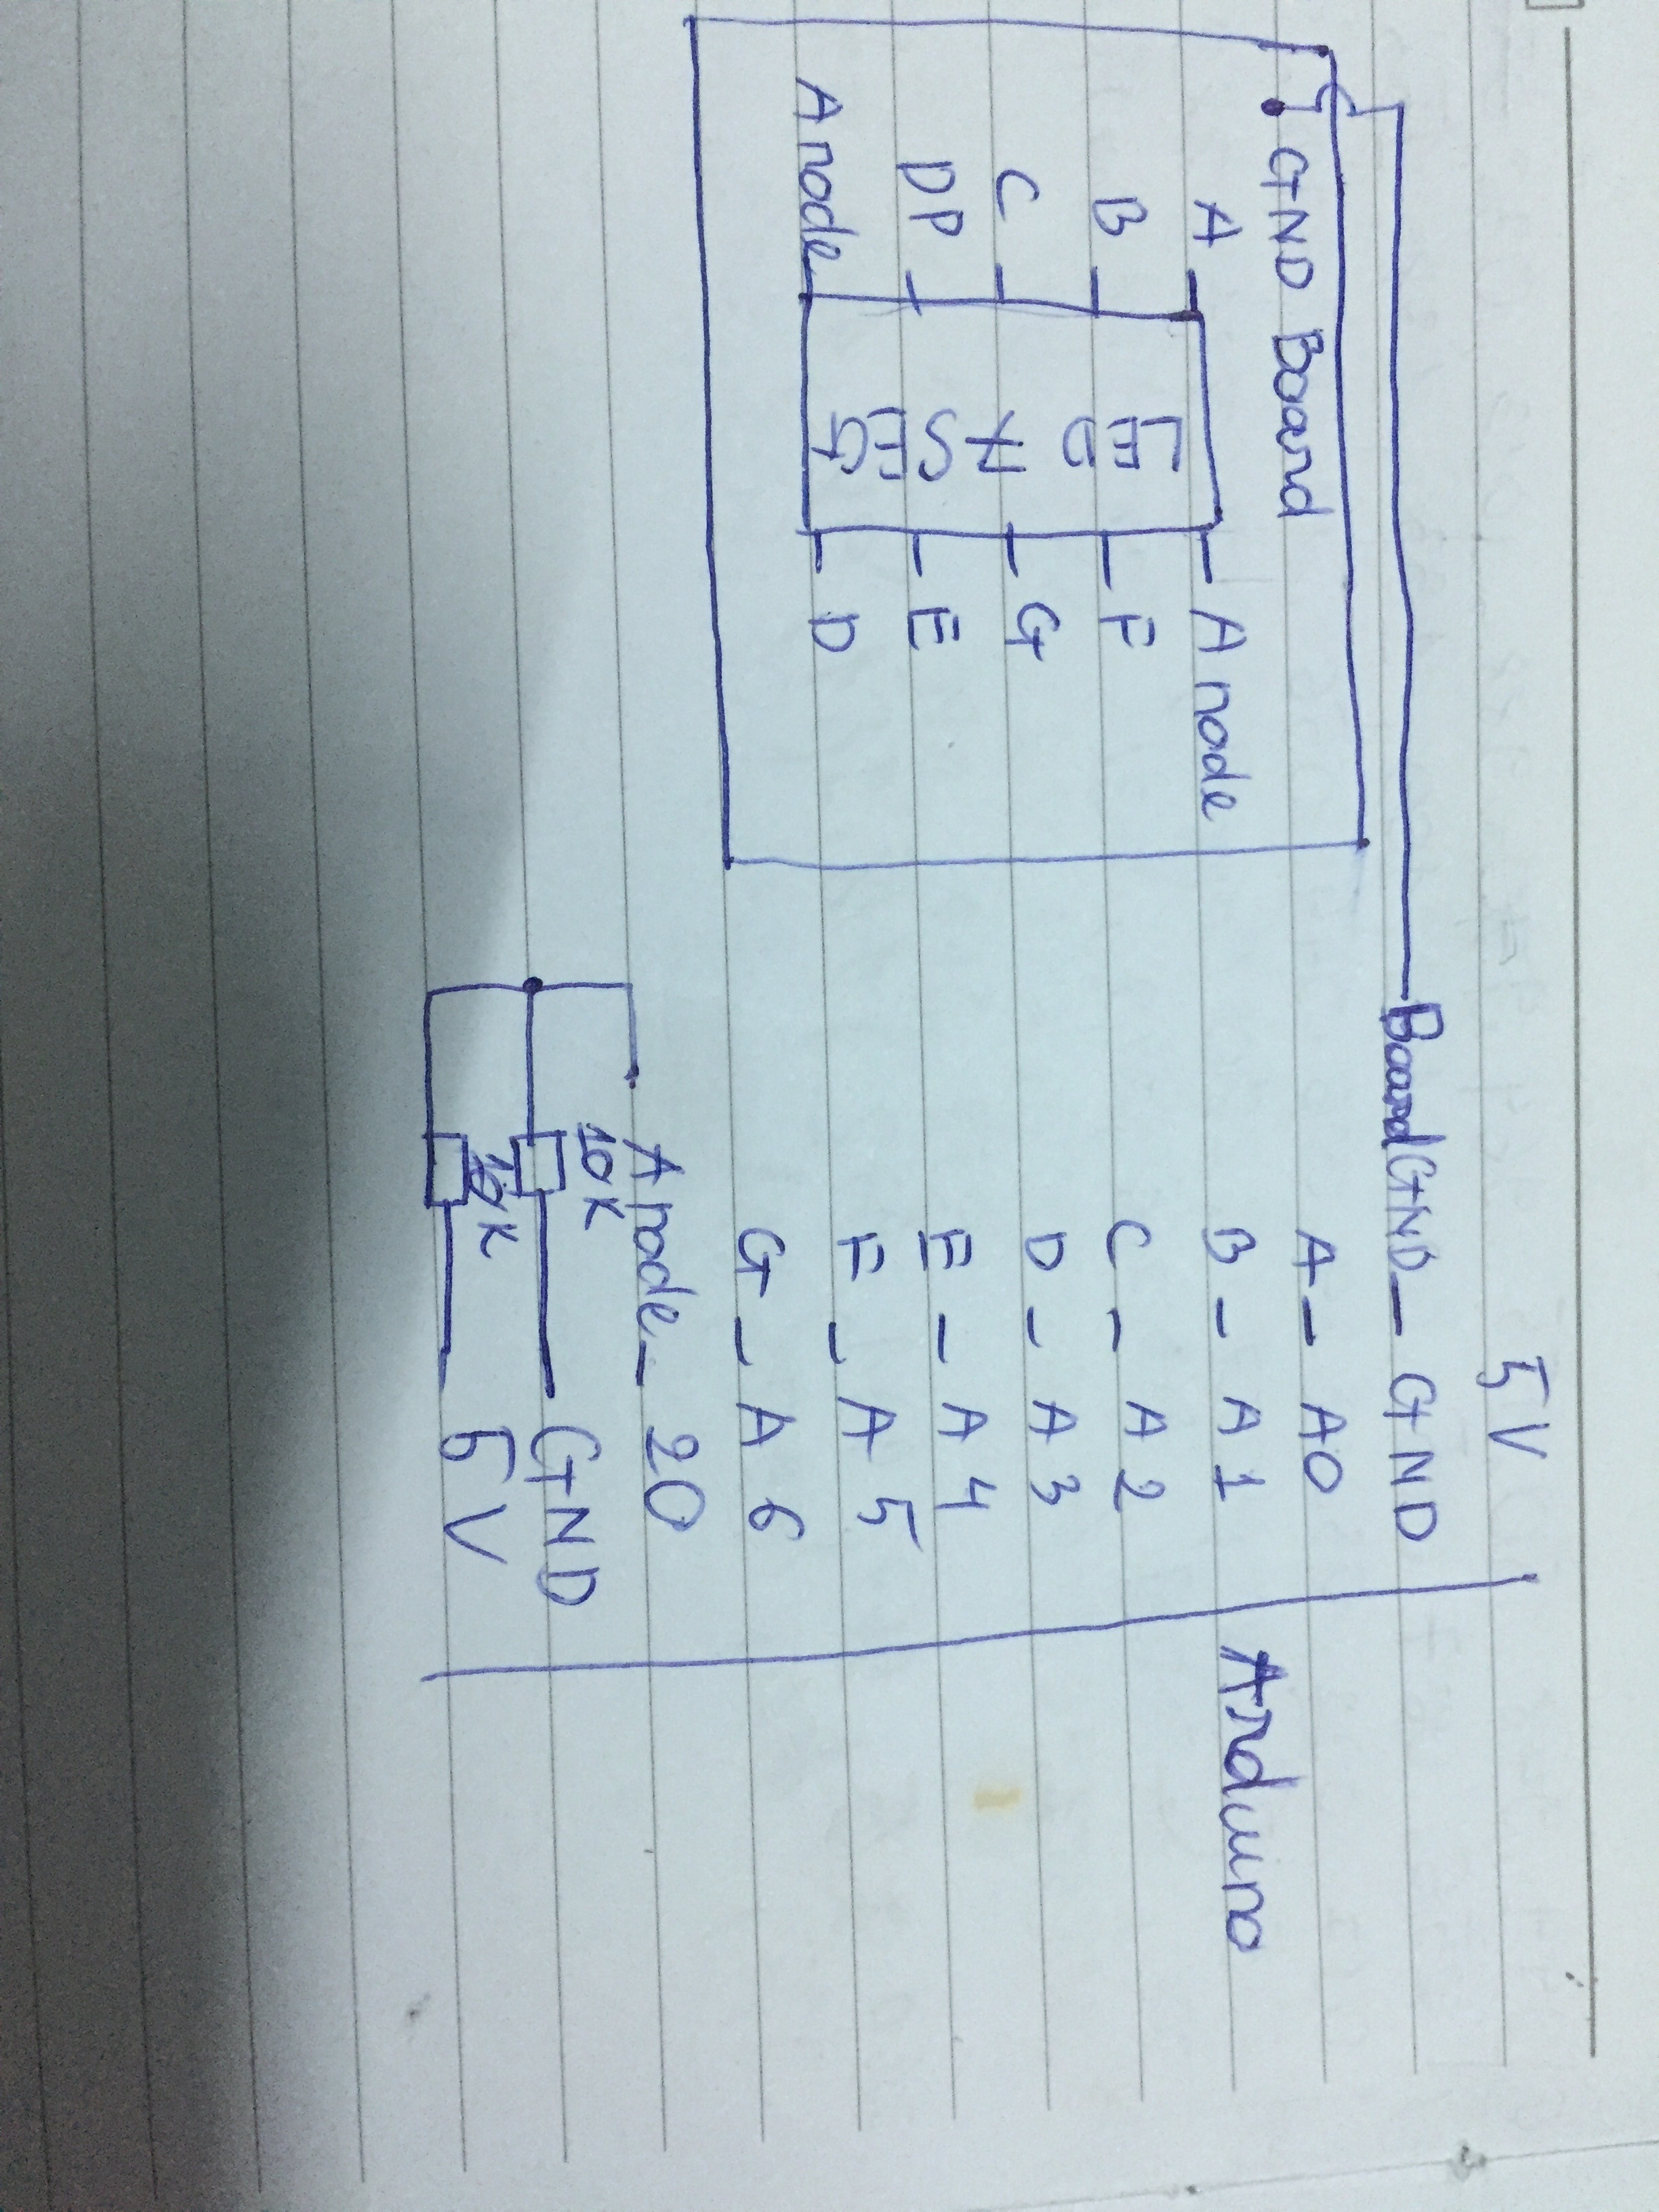 5V
Board GND — GND
GND Board
A — A0
B — A1
C — A2
D — A3
E — A4
F — A5
G — A6
Anode — 20
10K
GND
10K
5V
Arduino
A
Anode
B
F
C
G
DP
E
Anode
D
LED
SEG